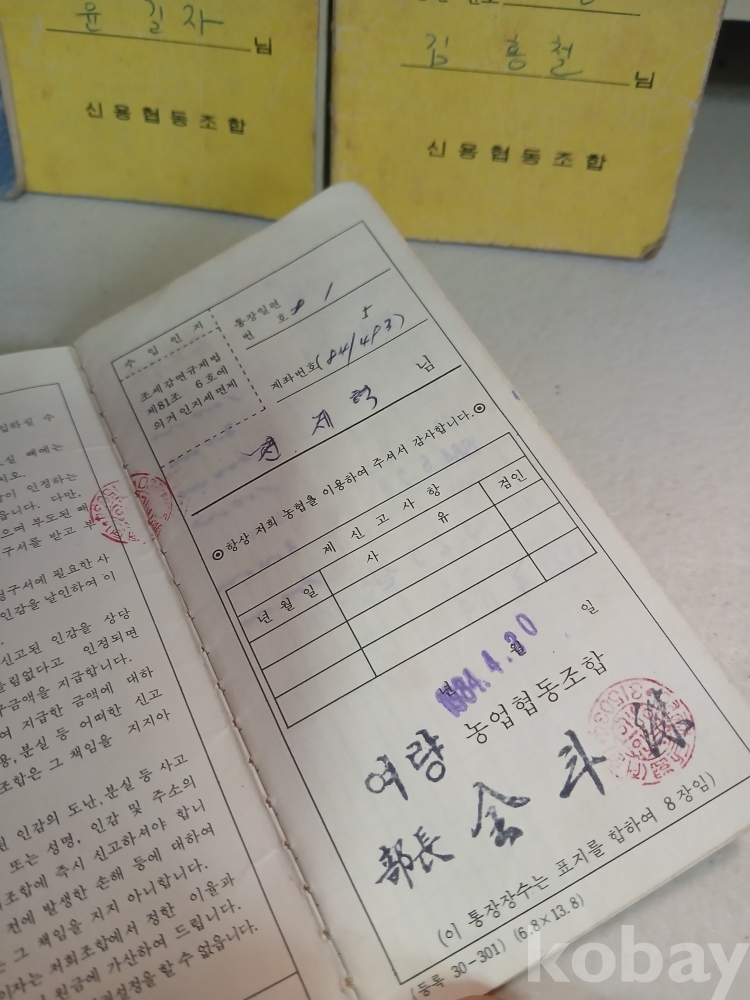 윤 길 자 님
신용협동조합
김 흥 철 님
신용협동조합
수입인지
조세감면규제법
제81조 6호에
의거 인지세면제
통장일련
번 호 8 1
계좌번호(84/493)
제 혁 님
◎항상 저희 농협을 이용하여 주셔서 감사합니다.◎
제 신 고 사 항
검인
년 월 일
사 유
년 월 일
1984.4.30
여량 농업협동조합
部長 金 斗
(이 통장장수는 표지를 합하여 8장임)
(등록 30-301) (6.8×13.8)
하실 수
때에는
시오.
인정하는
습니다. 다만,
으며 부도된
구서를 받고
청구서에 필요한 사
인감을 날인하여 이
신고된 인감을 상당
틀림없다고 인정되면
구금액을 지급합니다.
여 지급한 금액에 대하
용, 분실 등 어떠한 신고
조합은 그 책임을 지지아
인감의 도난, 분실 등 사고
또는 성명, 인감 및 주소의
조합에 즉시 신고하셔야 합니
전에 발생한 손해 등에 대하여
그 책임을 지지 아니합니다.
이자는 저희조합에서 정한 이율과
원금에 가산하여 드립니다.
설정을 할 수 없습니다.
kobay